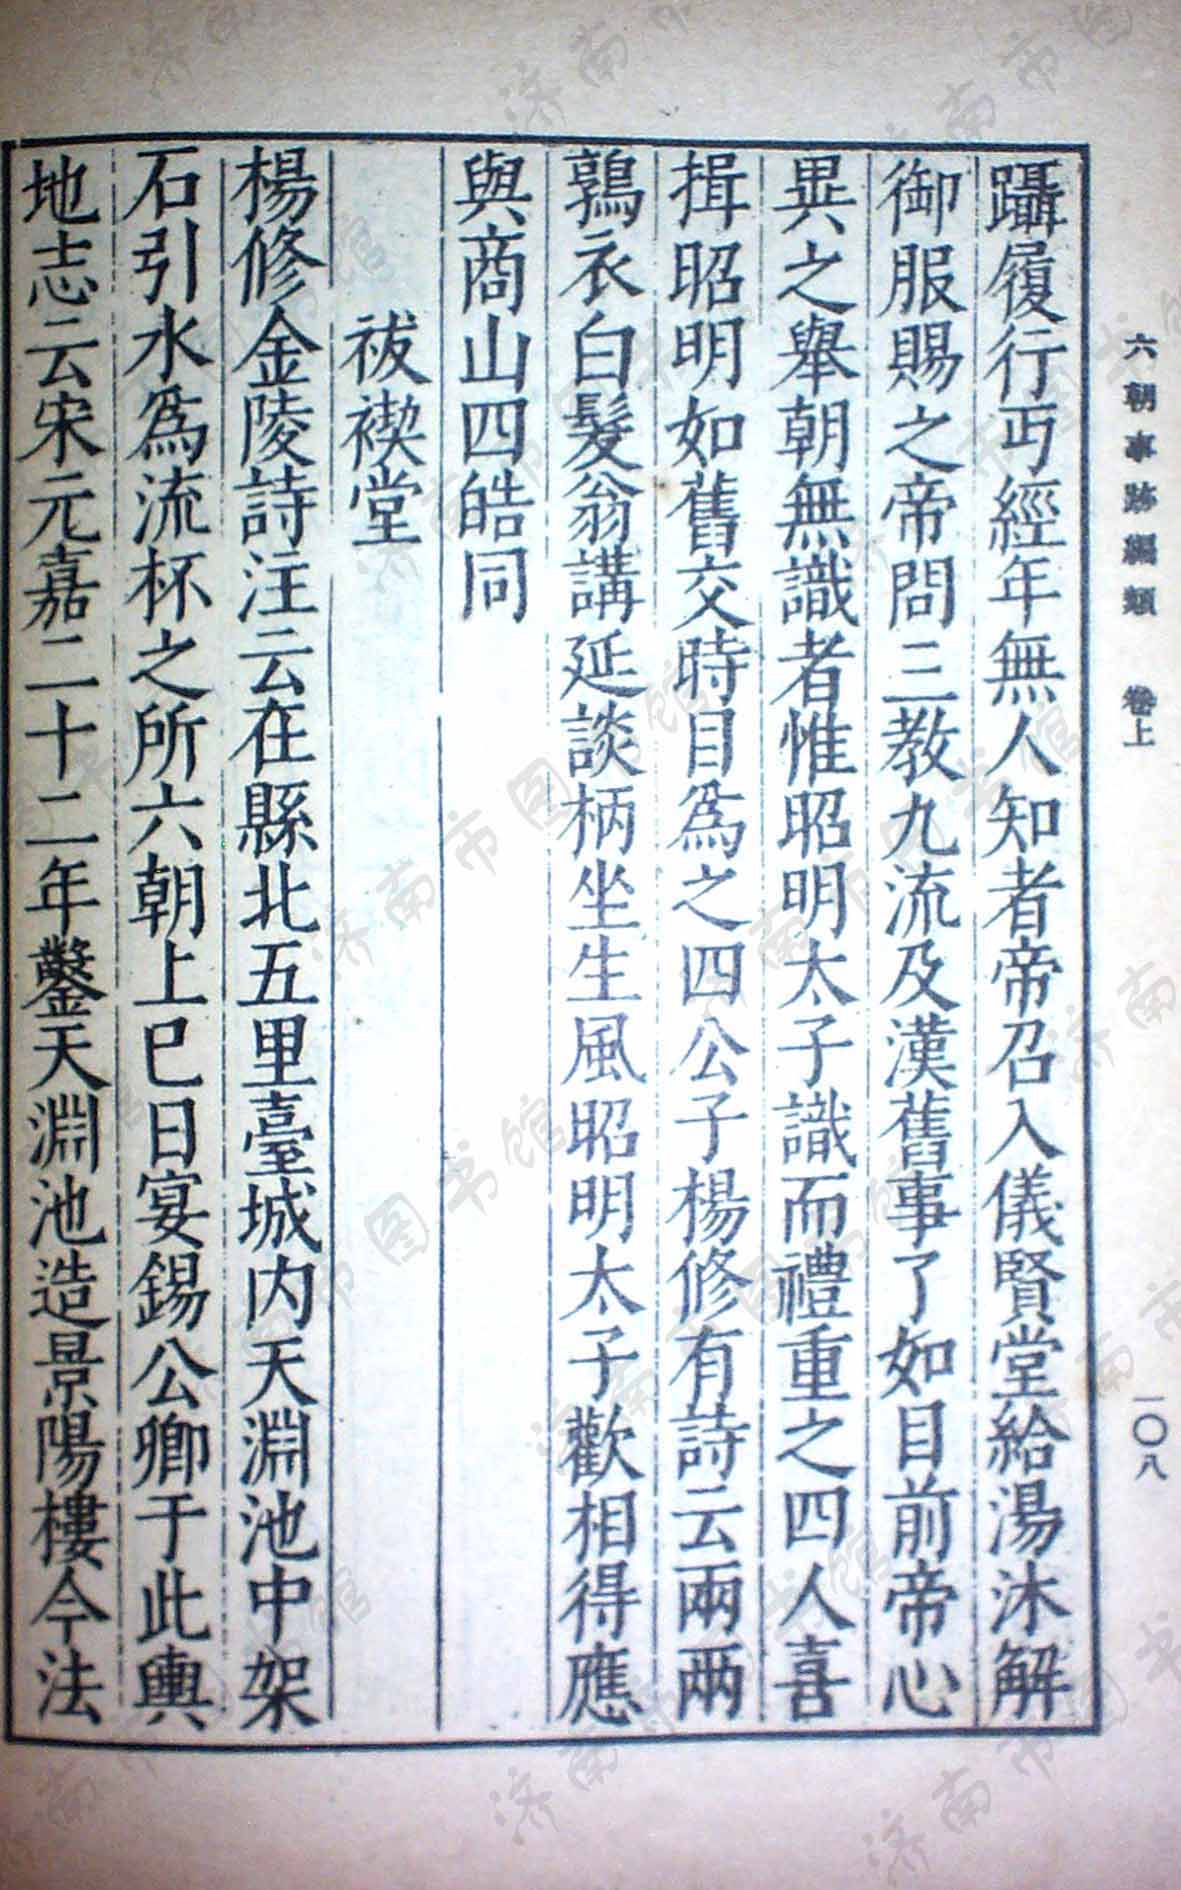 六朝事跡編類 卷上
一〇八
躡履行丐經年無人知者帝召入儀賢堂給湯沐解
御服賜之帝問三教九流及漢舊事了如目前帝心
異之舉朝無識者惟昭明太子識而禮重之四人喜
揖昭明如舊交時目爲之四公子楊修有詩云兩兩
鶉衣白髮翁講延談柄坐生風昭明太子歡相得應
與商山四皓同
祓禊堂
楊修金陵詩注云在縣北五里臺城内天淵池中架
石引水爲流杯之所六朝上巳日宴錫公卿于此輿
地志云宋元嘉二十二年鑿天淵池造景陽樓今法
济南市图书馆